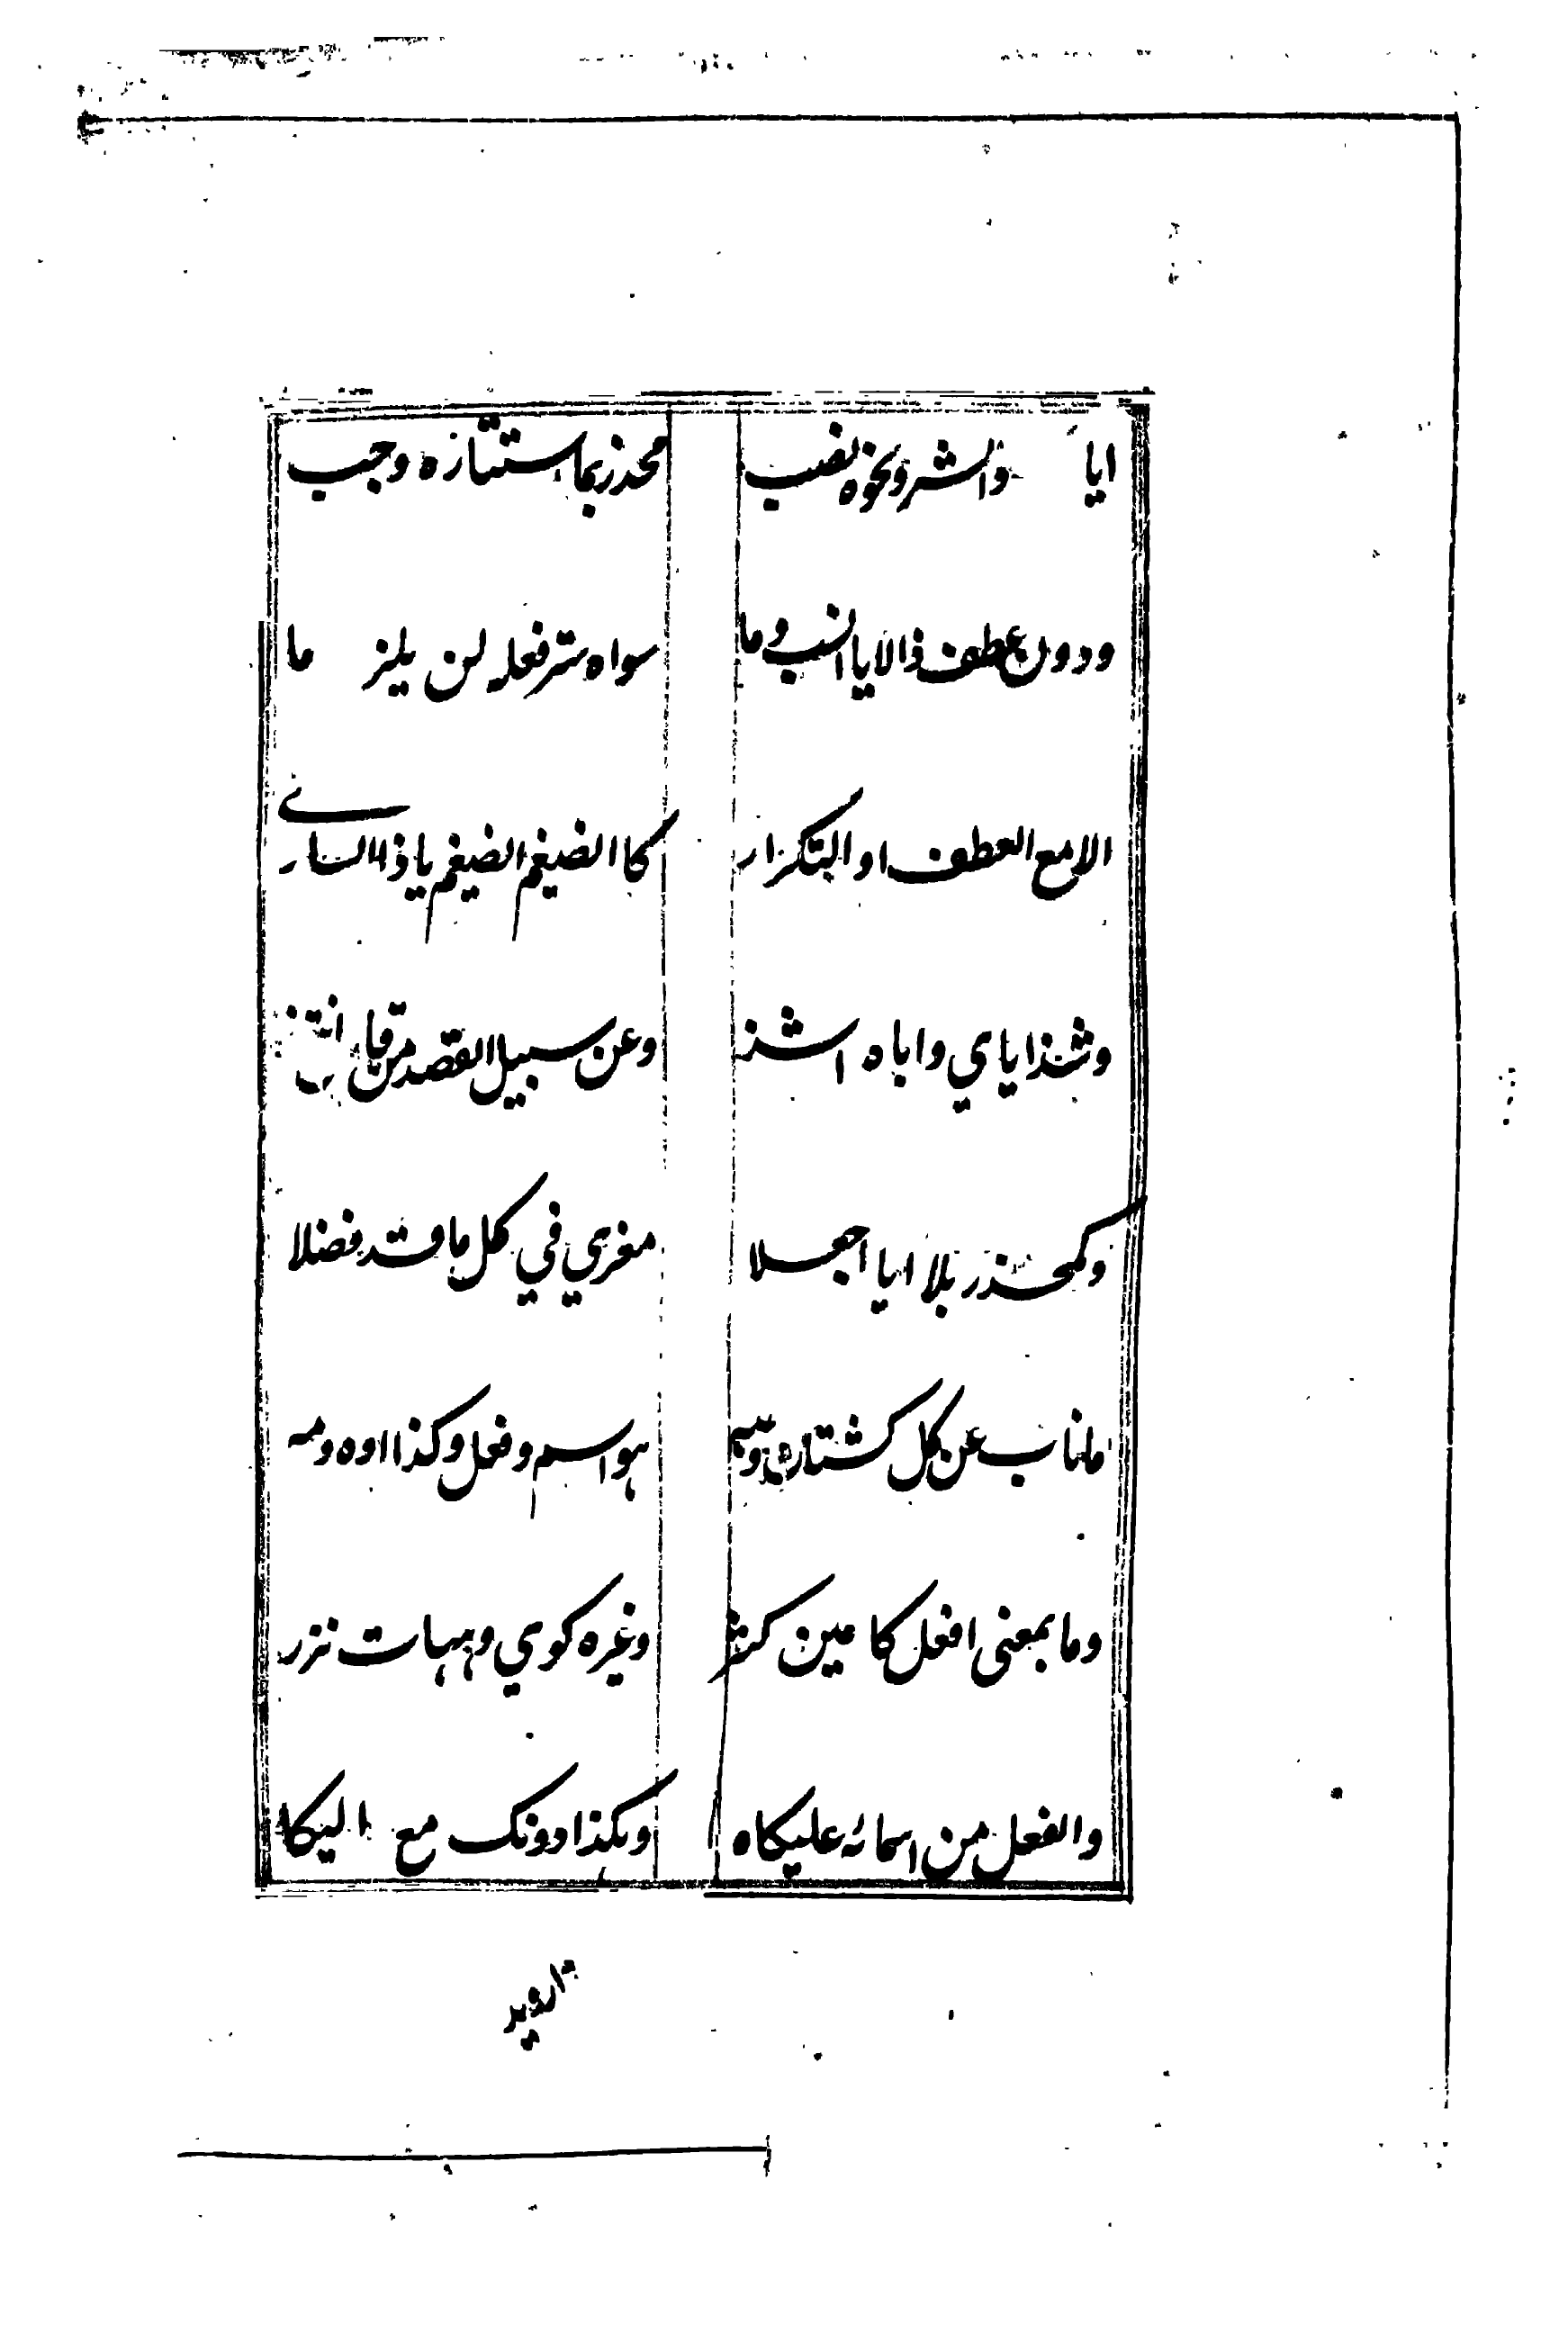 ايا والشر ونحوه نصب محذر بما ستتاره وجب
ودون عطف ذالايا انسب وما سواه ستر فعله لن يلز ما
الا مع العطف او التكرار كا الضيغم الضيغم يا ذا السارے
وشذ اياي واياه اشذ وعن سبيل القصد من قاس انتبذ
وكمحذر بلا ايا اجعلا مغري في كل ما قد فضلا
ما ناب عن كل كشتاره وصه هو اسم وفعل وكذا اوه ومه
وما بمعنى افعل كا مين كثر وغيره كوي وهيهات نزر
والفعل من اسمائه عليكاه وهكذا دونك مع اليكا
رويد